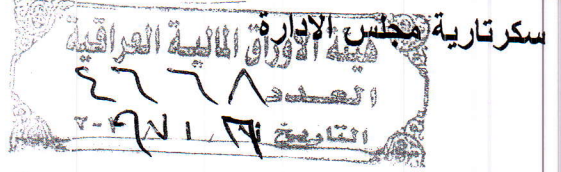 سكرتارية مجلس الادارة
هيئة الاوراق المالية العراقية
العدد ٤٦٦٨
التاريخ